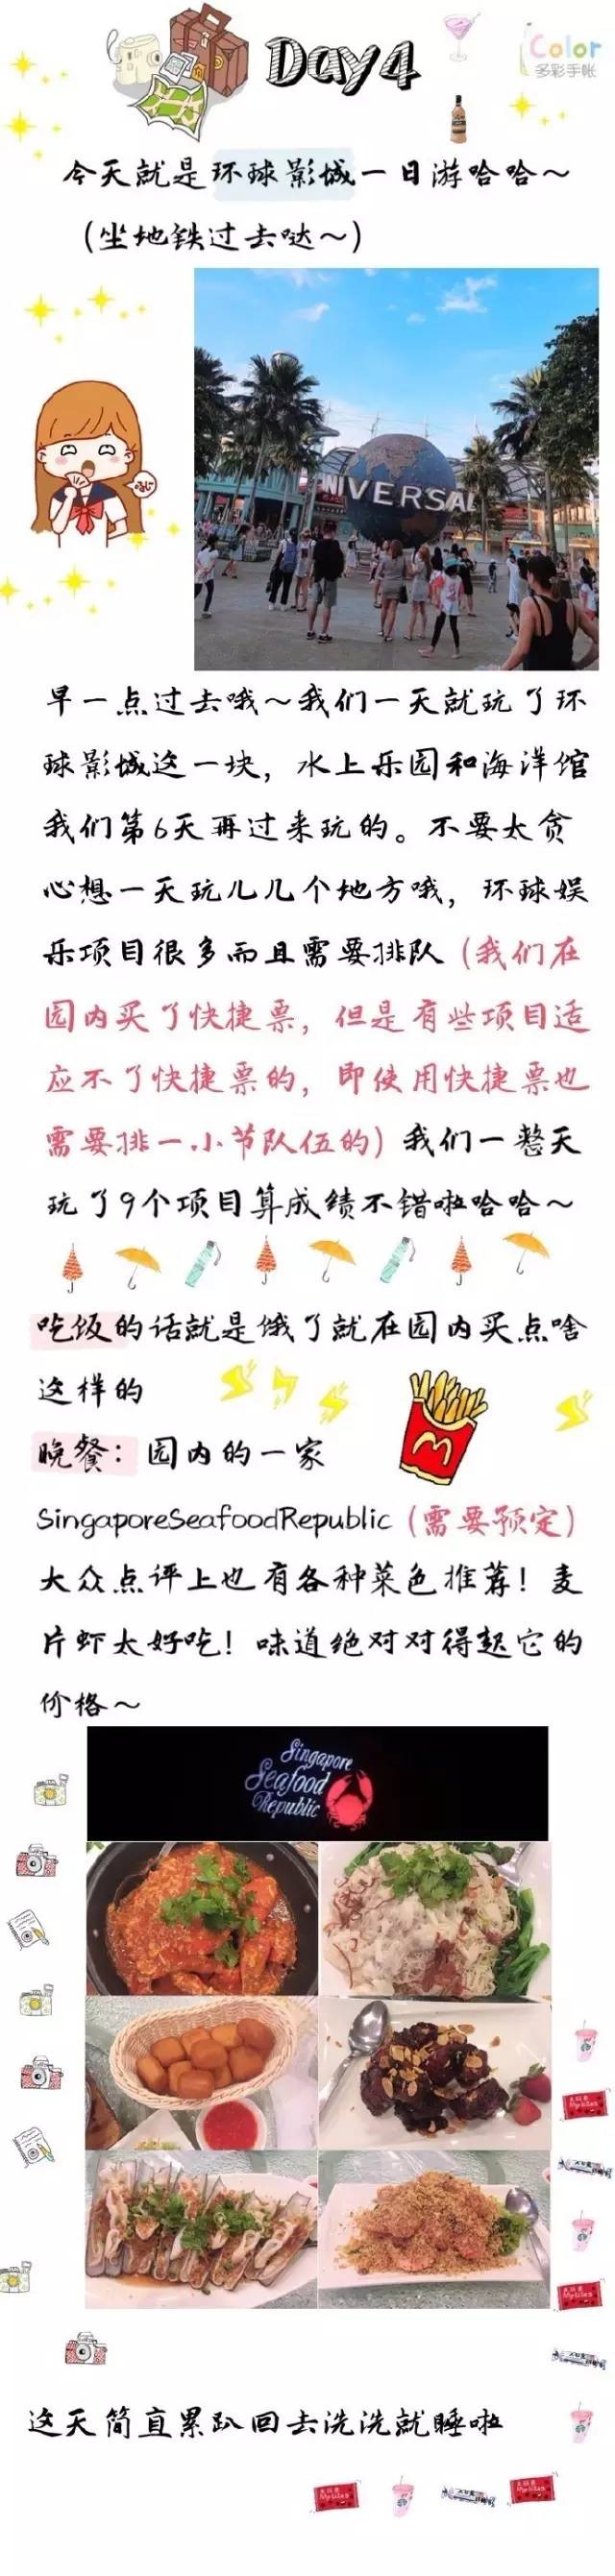 Day4
Color
多彩手帐
今天就是环球影城一日游哈哈～
（坐地铁过去哒～）
UNIVERSAL
早一点过去哦～我们一天就玩了环
球影城这一块，水上乐园和海洋馆
我们第6天再过来玩的。不要太贪
心想一天玩儿几个地方哦，环球娱
乐项目很多而且需要排队（我们在
园内买了快捷票，但是有些项目适
应不了快捷票的，即使用快捷票也
需要排一小节队伍的）我们一整天
玩了9个项目算成绩不错啦哈哈～
吃饭的话就是饿了就在园内买点啥
这样的
晚餐：园内的一家
SingaporeSeafoodRepublic（需要预定）
大众点评上也有各种菜色推荐！麦
片虾太好吃！味道绝对对得起它的
价格～
Singapore
Seafood
Republic
这天简直累趴回去洗洗就睡啦